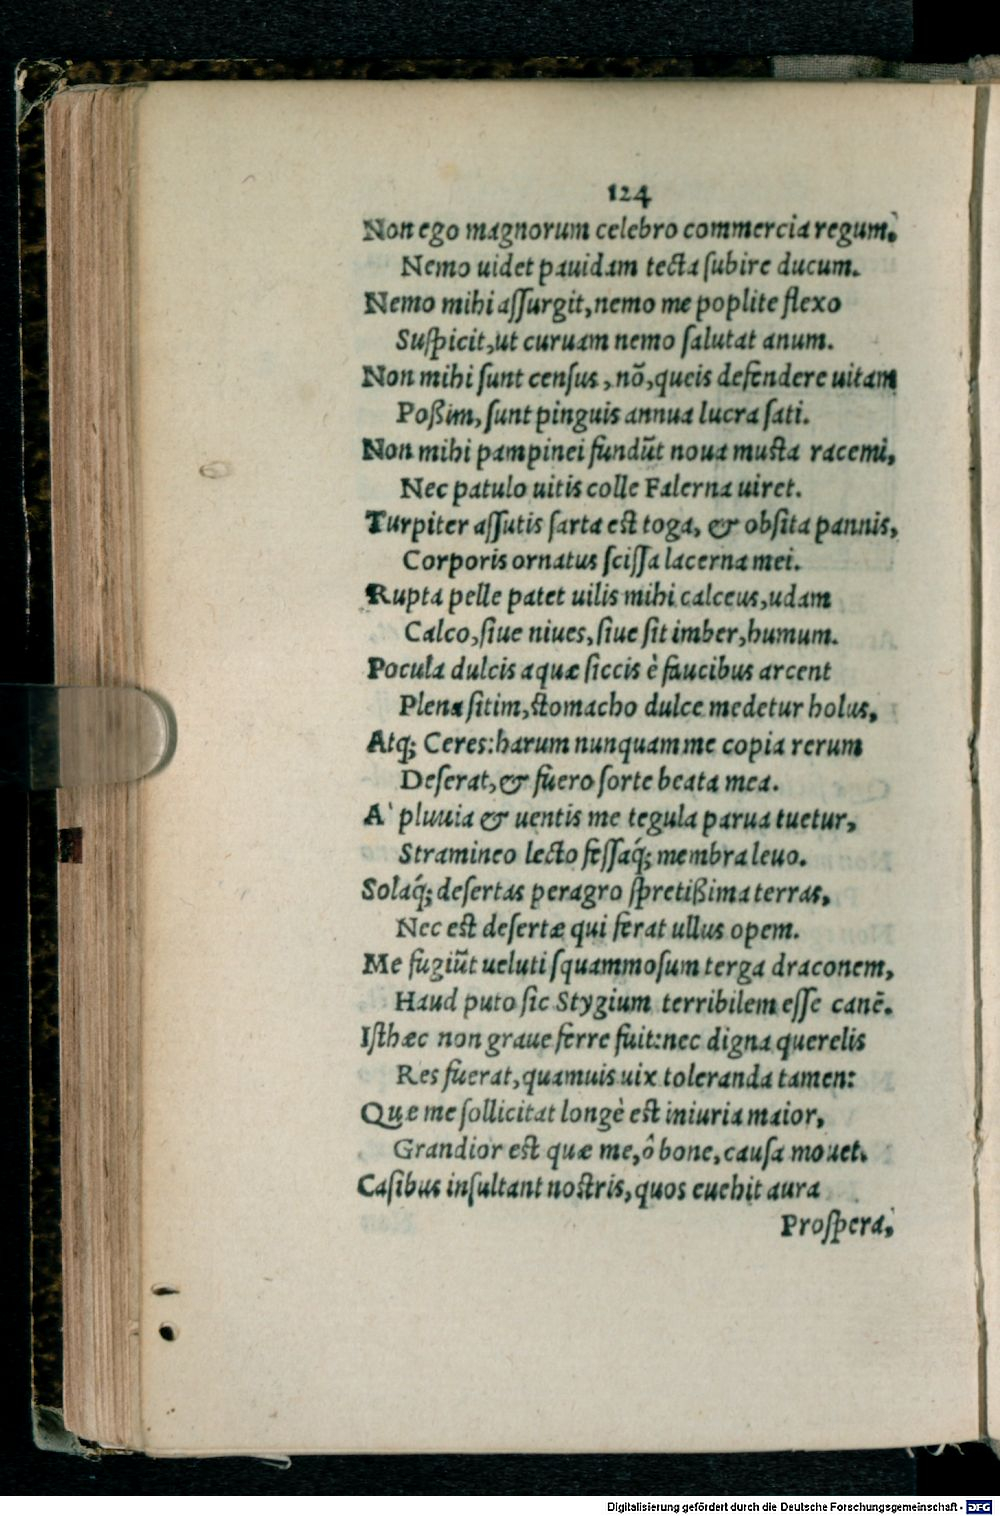 124
Non ego magnorum celebro commercia regum,
Nemo uidet pauidam tecta ſubire ducum.
Nemo mihi aſſurgit, nemo me poplite flexo
Suſpicit, ut curuam nemo ſalutat anum.
Non mihi ſunt cenſus, nõ, queis defendere uitam
Poßim, ſunt pinguis annua lucra ſati.
Non mihi pampinei fundũt noua muſta racemi,
Nec patulo uitis colle Falerna uiret.
Turpiter aſſutis ſarta eſt toga, & obſita pannis,
Corporis ornatus ſciſſa lacerna mei.
Rupta pelle patet uilis mihi calceus, udam
Calco, ſiue niues, ſiue ſit imber, humum.
Pocula dulcis aquæ ſiccis è faucibus arcent
Plena ſitim, ſtomacho dulce medetur holus,
Atq; Ceres: harum nunquam me copia rerum
Deſerat, & fuero ſorte beata mea.
A` pluuia & uentis me tegula parua tuetur,
Stramineo lecto feſſaq́; membra leuo.
Solaq́; deſertas peragro ſpretißima terras,
Nec eſt deſertæ qui ferat ullus opem.
Me fugiũt ueluti ſquammoſum terga draconem,
Haud puto ſic Stygium terribilem eſſe canẽ.
Iſthæc non graue ferre fuit: nec digna querelis
Res fuerat, quamuis uix toleranda tamen:
Quæ me ſollicitat longè eſt iniuria maior,
Grandior eſt quæ me, ô bone, cauſa mouet.
Caſibus inſultant noſtris, quos euehit aura
Proſpera,
Digitalisierung gefördert durch die Deutsche Forschungsgemeinschaft - DFG